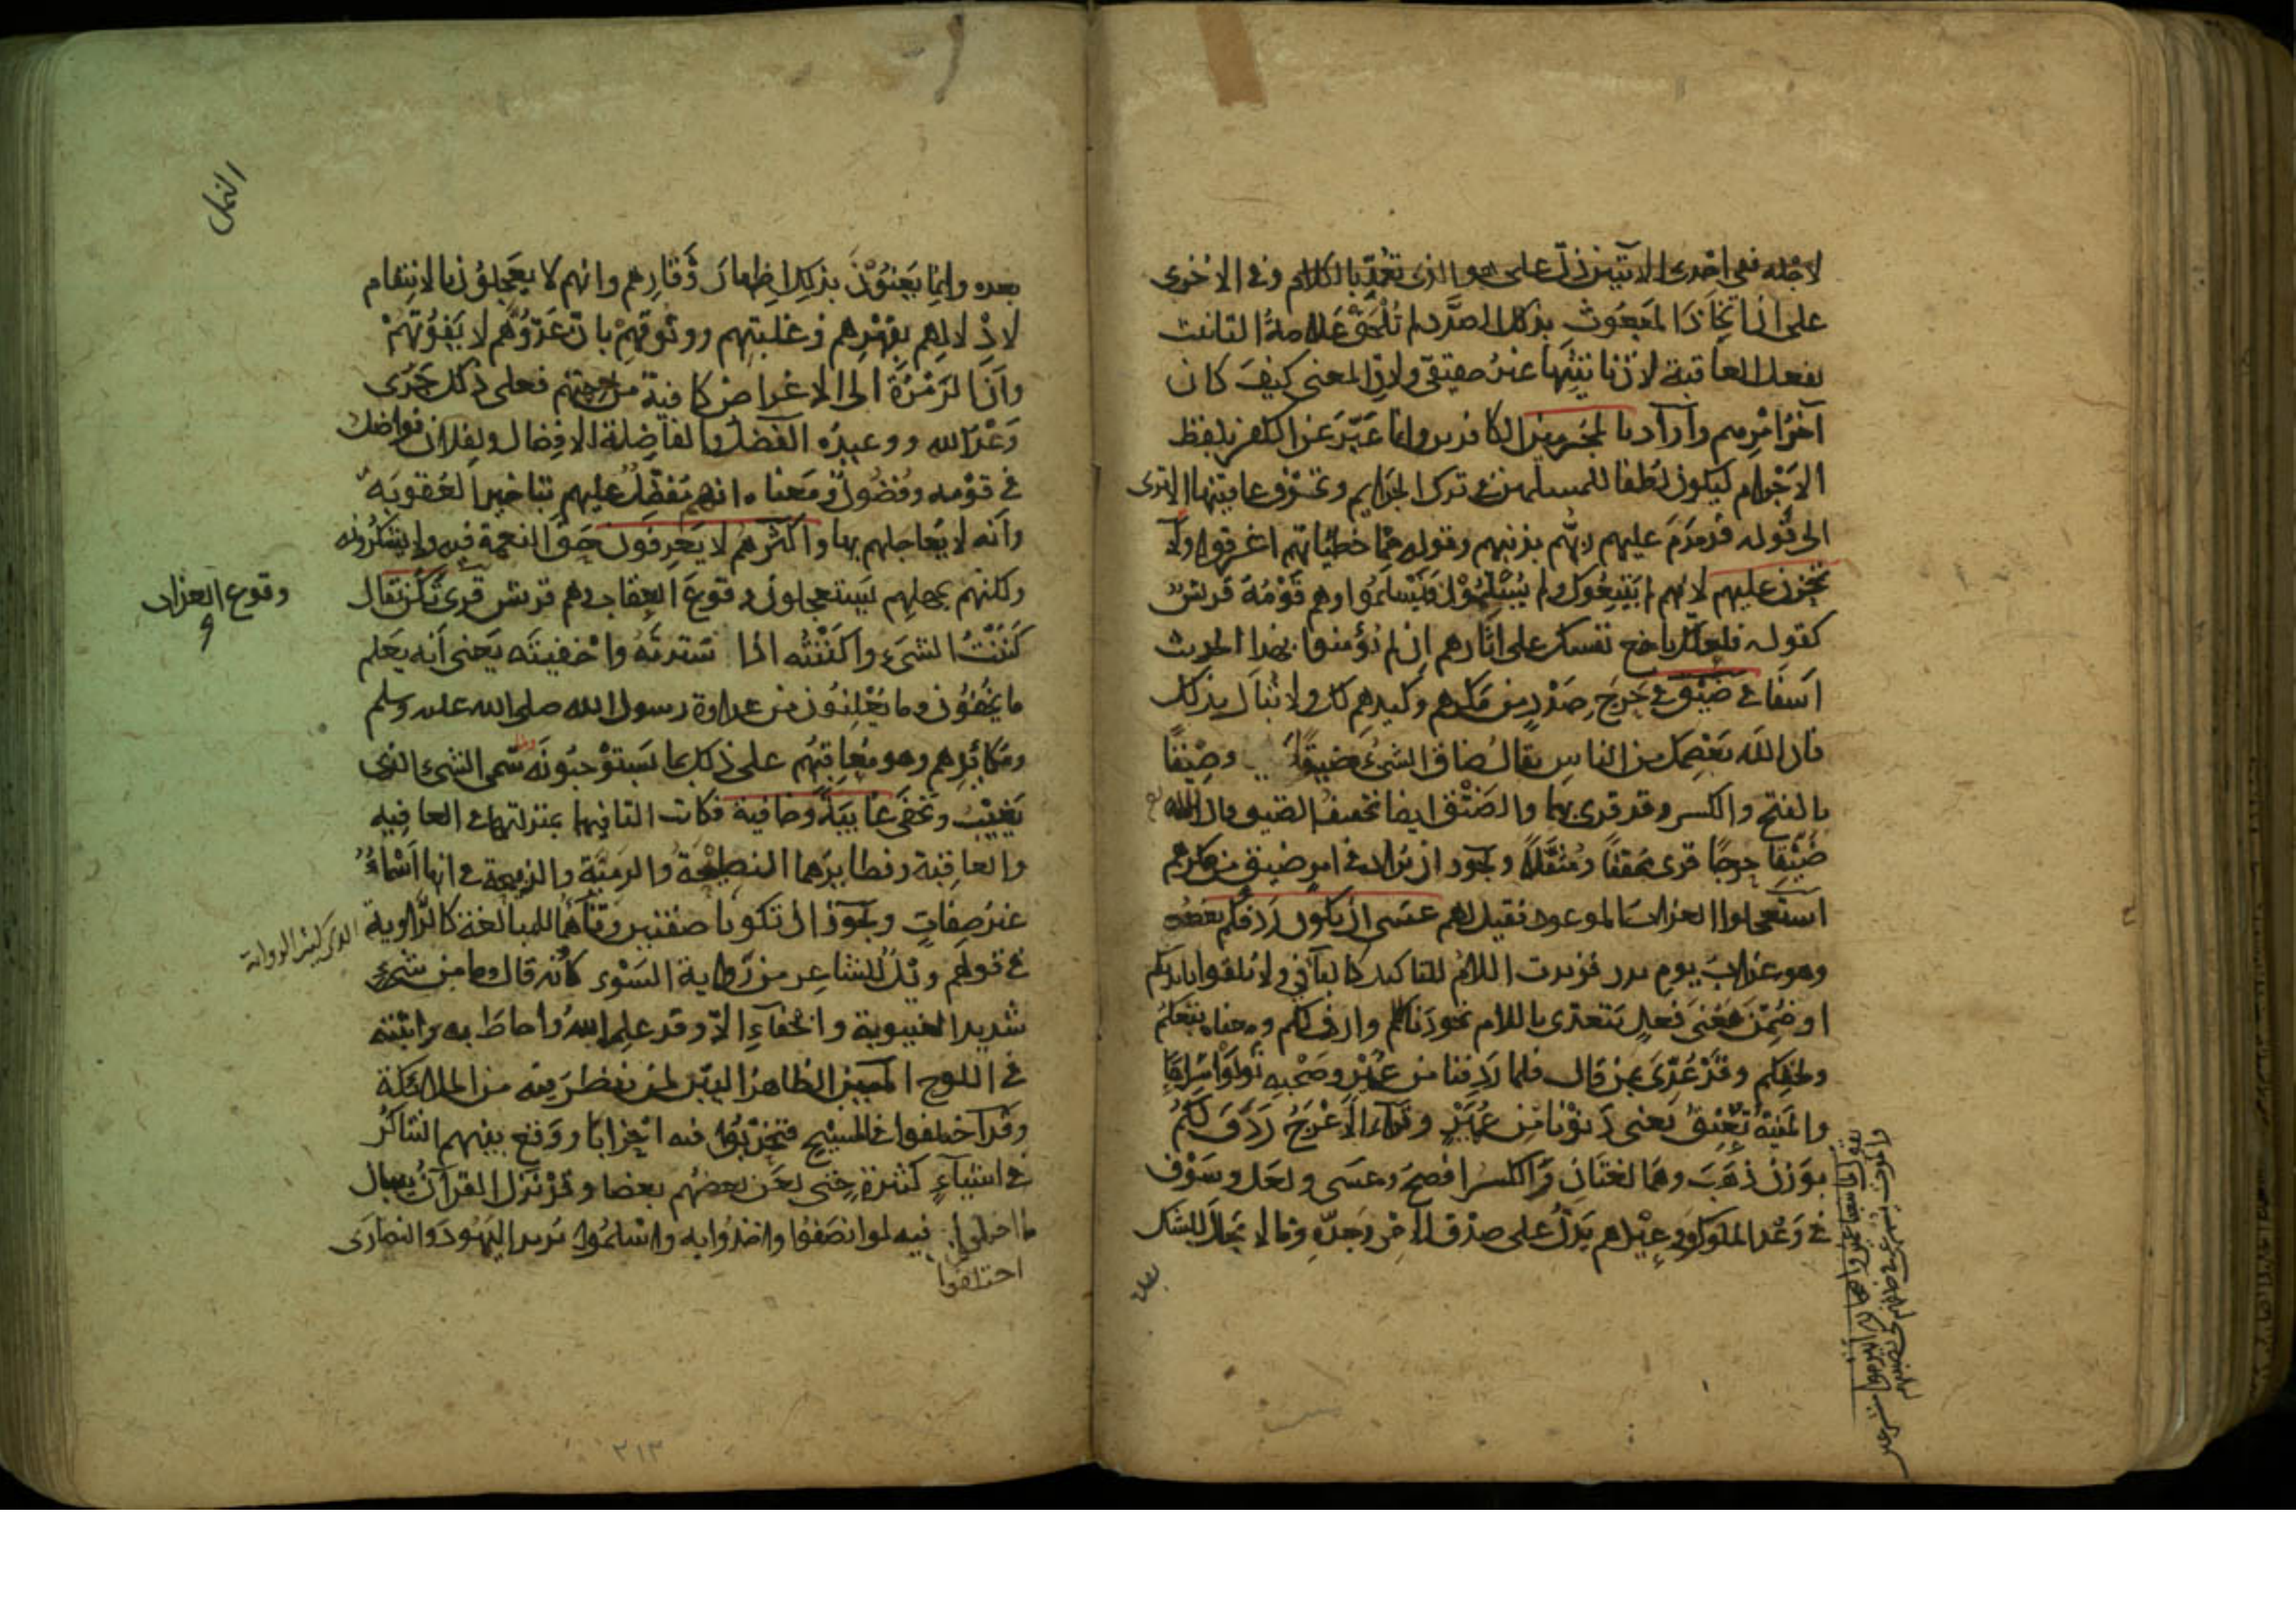 لاجله ففي احدى الآيتين دلّ على هو الذي تُعُمِّد بالكلام وفي الاخرى
على ان اتخاذ المبعوث بذلك الصدد لم تُلْحَق علامةُ التانيث
بفعل العاقبة لان تانيثها غير حقيقي ولان المعنى كيفَ كان
آخرُ امرهم وأراد بالمجرمين الكافرين وانما عبّر عن الكفر بلفظ
الاجرام ليكون لطفا للمسلمين في ترك الجرايم وتخوّف عاقبتها الا ترى
الى قوله فدمدمَ عليهم ربّهم بذنبهم وقوله مما خطيئاتهم اغرقوا ولا
تحزن عليهم لانهم لم يَتّبعُوك ولم يُسْلِمُوْا فَيَسْلَمُوا وهم قَوْمُهُ قريش
كقوله فلعلك باخع نفسك على آثارهم ان لم يؤمنوا بهذا الحديث
اسفا في ضَيْق في حَرَج صَدْرٍ من مكرهم وكيدهم لك ولا تُبَال بذلك
فان الله يَعْصِمك من الناس يقال ضاق الشيء ضيقًا وضِيْقًا
بالفتح والكسر وقد قرئ بهما والضَيْق ايضا تخفيف الضيق قال الله تع
ضَيْقًا حرجًا قرئ مخففًا ومُثقَّلاً ويجوز ان يراد في امرٍ ضيق من مكرهم
استعجلوا العذابَ الموعود فقيل لهم عسى ان يكون رَدِفَكم بعضُه
وهو عذابُ يوم بدر فزيدت اللامُ للتاكيد كالباء في ولا تلقوا بايديكم
او ضُمّن مَعْنَى فعل يَتعدّى باللام نحو دَنا لكم وازف لكم ومعناه تبعكم
ولحقكم وقَدْ عُدِّيَ بمن قال فلما رَدِفنا من عُمَيْرٍ وصَحْبِهِ تَولَّوْا سِراعًا
والمَنِيّةُ تُعْنِقُ يعنى دَنَوْنا مِن عُمَيْرٍ وقراءة الأَعْرَجُ رَدَفَ لَكُمْ
بوَزن ذَهَبَ وهما لغتان والكسر افصحُ وعَسَى ولعل وسَوْفَ
في وَعْد الملوك ووعيدهم يَدُلُّ على صدق الأمر وجدّه وما لا مجال للشك
بعده
النمل
بعده وانما يَعنُوْنَ بذلك اظهارَ وَقارِهم وانهم لا يَعجَلوُن بالانتقام
لادْلالِهم بقهرهم وغلبتهم ووثوقهمْ بان عَدُوّهم لا يَفُوْتهمْ
وأنّ الرَمْزة الى الاغراض كافية من جهتهم فعلى ذلك جَرَى
وَعْدُ الله ووعيدُه الفضلُ والفاضلة الافضال ولفلان فواضل
في قومه وفضُول ومَعناه انه مُفْضِلٌ عليهم بتاخير العُقوبَة
وأنه لا يُعاجلهم بها واكثرهم لا يَعرفون حقَّ النعمة فيه ولا يشكرونه
ولكنهم بجهلهم يَستعجلون وقوعَ العقاب وهم قريش قرئ تَكُنّ يقال
وقوع العذاب
و
كَنَنْتُ الشيءَ واَكنَنْتُه اذا سَتَرتَهُ واخفيتَه يَعني أنه يَعلم
ما يُخفُوْن وما يُعْلِنوُن من عداوة رسول الله صلى الله عليه وسلم
ومكائدِهم وهو مُعاقِبُهم على ذلك بما يَستوْجبُونَه سُمّي الشيء الذي
يَغِيْب ويَخفَى غايبَةً وخافية فكانت التا فيهما بمنزلتها في العافيه
والعاقبة ونظايرَهما النطيْحَةُ والرميَّة والذبيحة في انها اَسْماءُ
غيرُ صِفاتٍ ويجوز ان تكونا صفتين وتاؤهما للمبالغة كالرَّاوية
الذي كثير الرواية
في قولهم ويْلٌ للشاعر من رَاوية السَوْء كأنه قال وما من شيء
شديد الغيبوبة والخفاءِ الاّ وقد علِمه الله وأحاطَ به واثبته
في اللوح المبين الظاهر البيّن لمن نظر فيه من الملائكة
وقد اختلفوا في المسيْح فتحَزَّبُوا فيه احزابًا ووَقع بينهم التناكُر
في اشيآءَ كثيرة حتى لعَن بعضُهم بعضا وقَدْ نزَل القرآنُ ببيان
ما اختلفوا فيه لو انصَفوُا واخذُوا به واسْلمُوا يُريد اليَهُودَ والنصارَى
اختلفوا
٢١٣